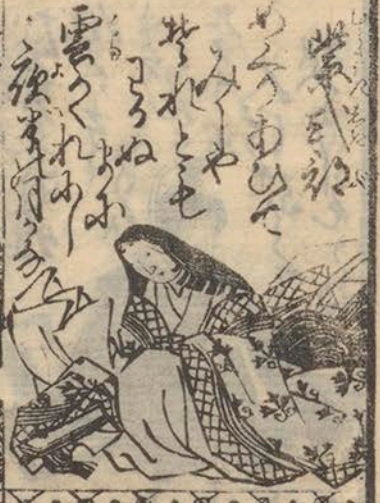 紫式部
めくりあひて
みしや
それとも
わかぬ
まに
雲かくれにし
夜半の月かな